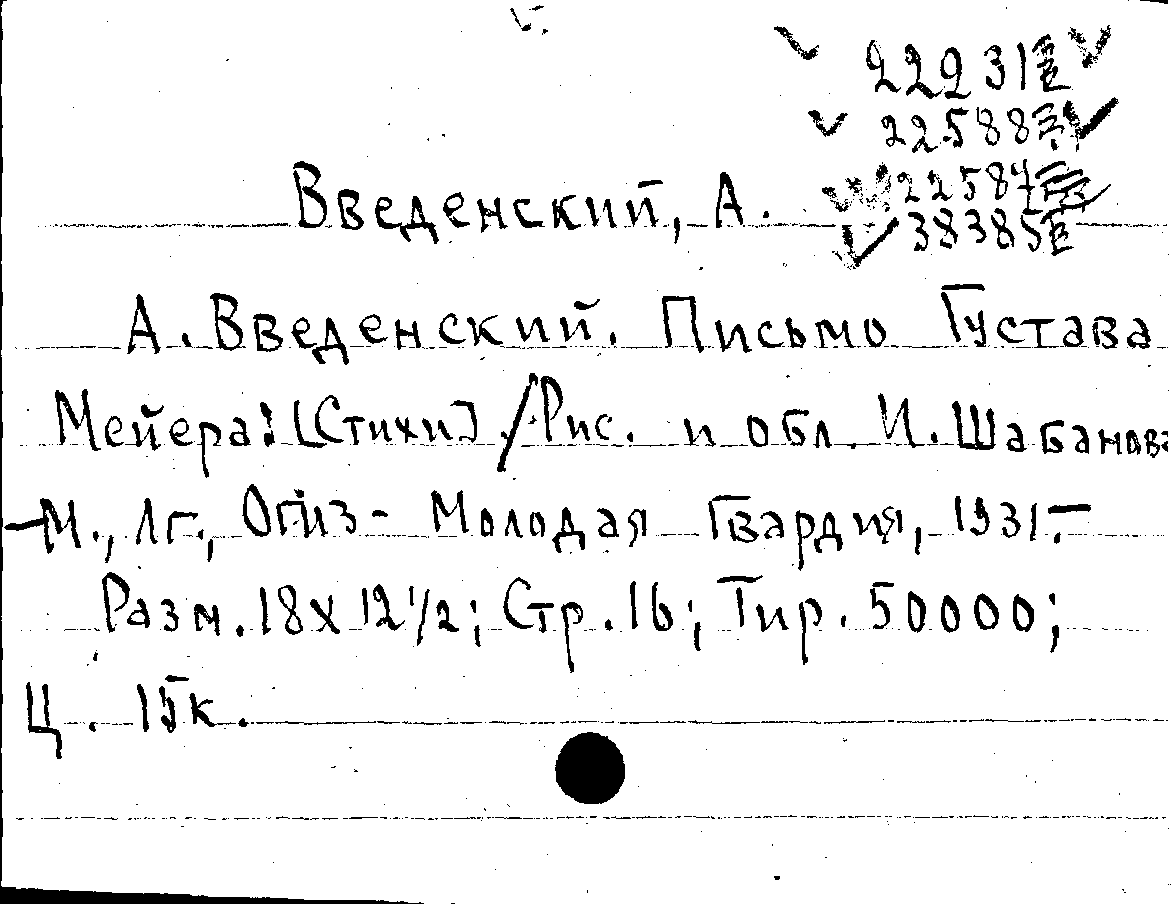 22231
22588
22587
38385
Введенский, А.
А. Введенский. Письмо Густава
Мейера: [Стихи] / Рис. и обл. И. Шабанова
— М., Лг., Огиз - Молодая Гвардия, 1931. —
Разм. 18 х 12 1/2; Стр. 16; Тир. 50000;
Ц. 15к.